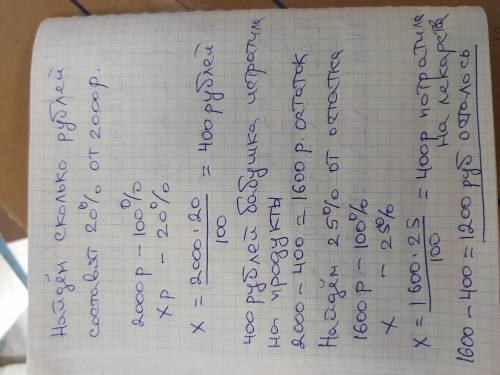 Найдём сколько рублей
составят 20% от 2000р.
2000р - 100%
Xр - 20%
X = 2000·20 / 100 = 400 рублей
400 рублей бабушка истратила
на продукты
2000 - 400 = 1600 р. остаток
Найдём 25% от остатка
1600р - 100%
X - 25%
X = 1600·25 / 100 = 400р потратила
на лекарства
1600 - 400 = 1200 руб осталось